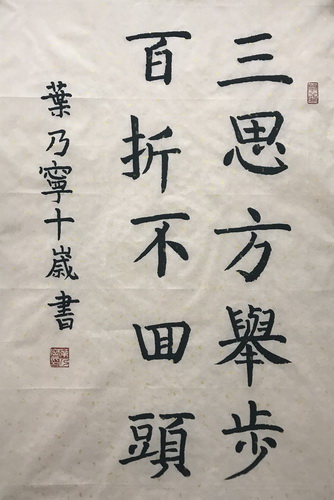 三思方舉步
百折不回頭
葉乃寧十歲書